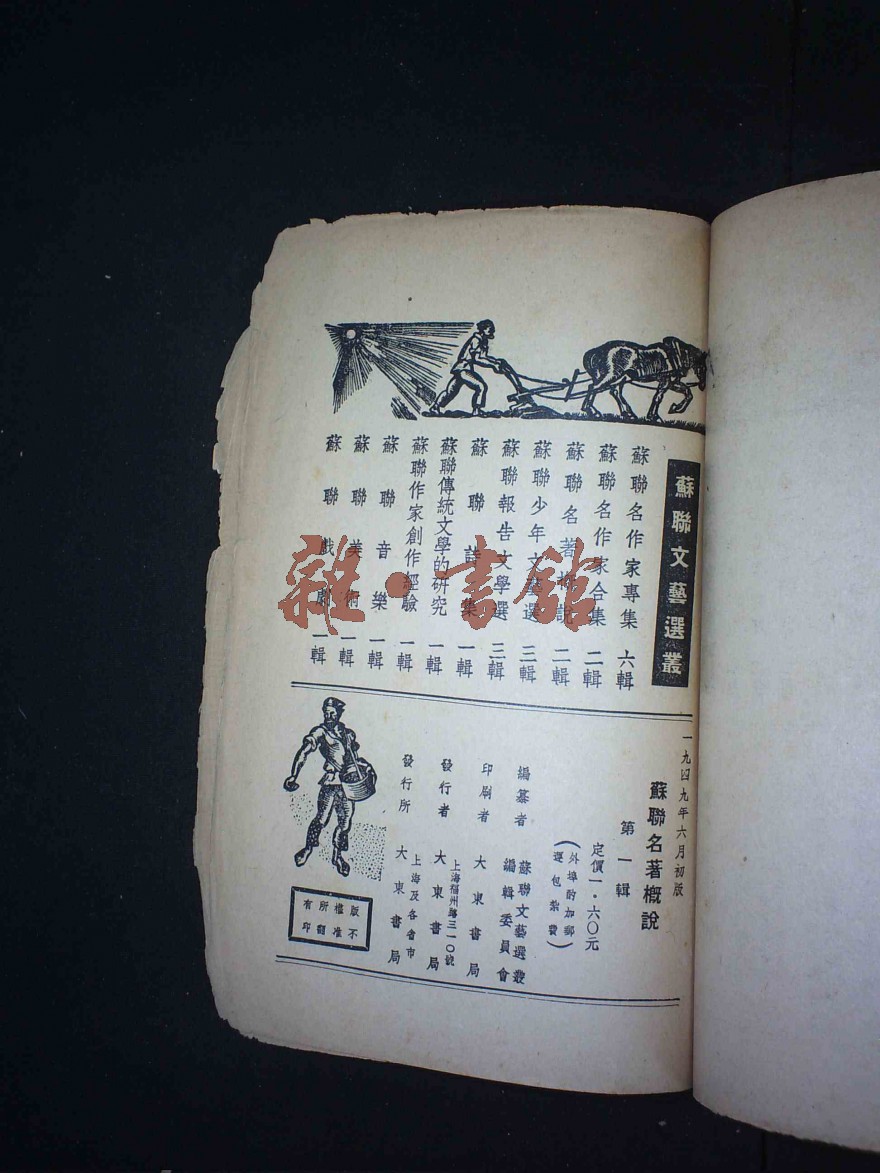 蘇聯文藝選叢
蘇聯名作家專集 六輯
蘇聯名作家合集 二輯
蘇聯名著概說 二輯
蘇聯少年文藝選 三輯
蘇聯報告文學選 三輯
蘇聯詩集 一輯
蘇聯傳統文學的研究 一輯
蘇聯作家創作經驗 一輯
蘇聯音樂 一輯
蘇聯美術 一輯
蘇聯戲劇 一輯
雜·書館
一九四九年六月初版
蘇聯名著概說
第一輯
定價一·六〇元
(外埠酌加郵
運包紮費)
編纂者 蘇聯文藝選叢
編輯委員會
印刷者 大東書局
發行者 上海福州路三一〇號
大東書局
發行所 上海及各省市
大東書局
版權所有
不准翻印